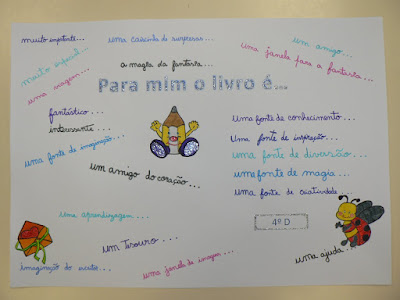 muito importante...
uma caixinha de surpresas...
um amigo...
muito especial...
uma janela para a fantasia...
uma viagem...
a magia da fantasia...
Para mim o livro é...
fantástico...
interessante...
uma fonte de imaginação...
um amigo do coração...
Uma fonte de conhecimento...
Uma fonte de inspiração...
uma fonte de diversão...
uma fonte de magia...
uma fonte de criatividade...
uma aprendizagem...
4º D
um Tesouro...
imaginação do escritor...
uma janela de imagens...
uma ajuda...